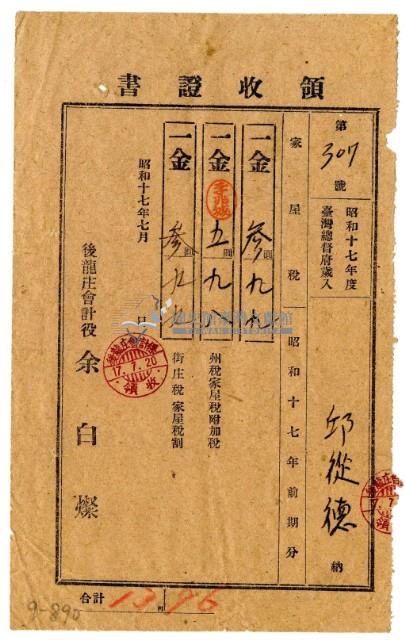 領收證書
第 307 號
昭和十七年度
臺灣總督府歲入
邱從德 納
家屋稅 昭和十七年前期分
一金 參
一金 五 九 州稅家屋稅附加稅
一金 參 街庄稅家屋稅割
昭和十七年七月 日
後龍庄會計役 余白燦
17.7.20
領收
合計 13 96
9-890